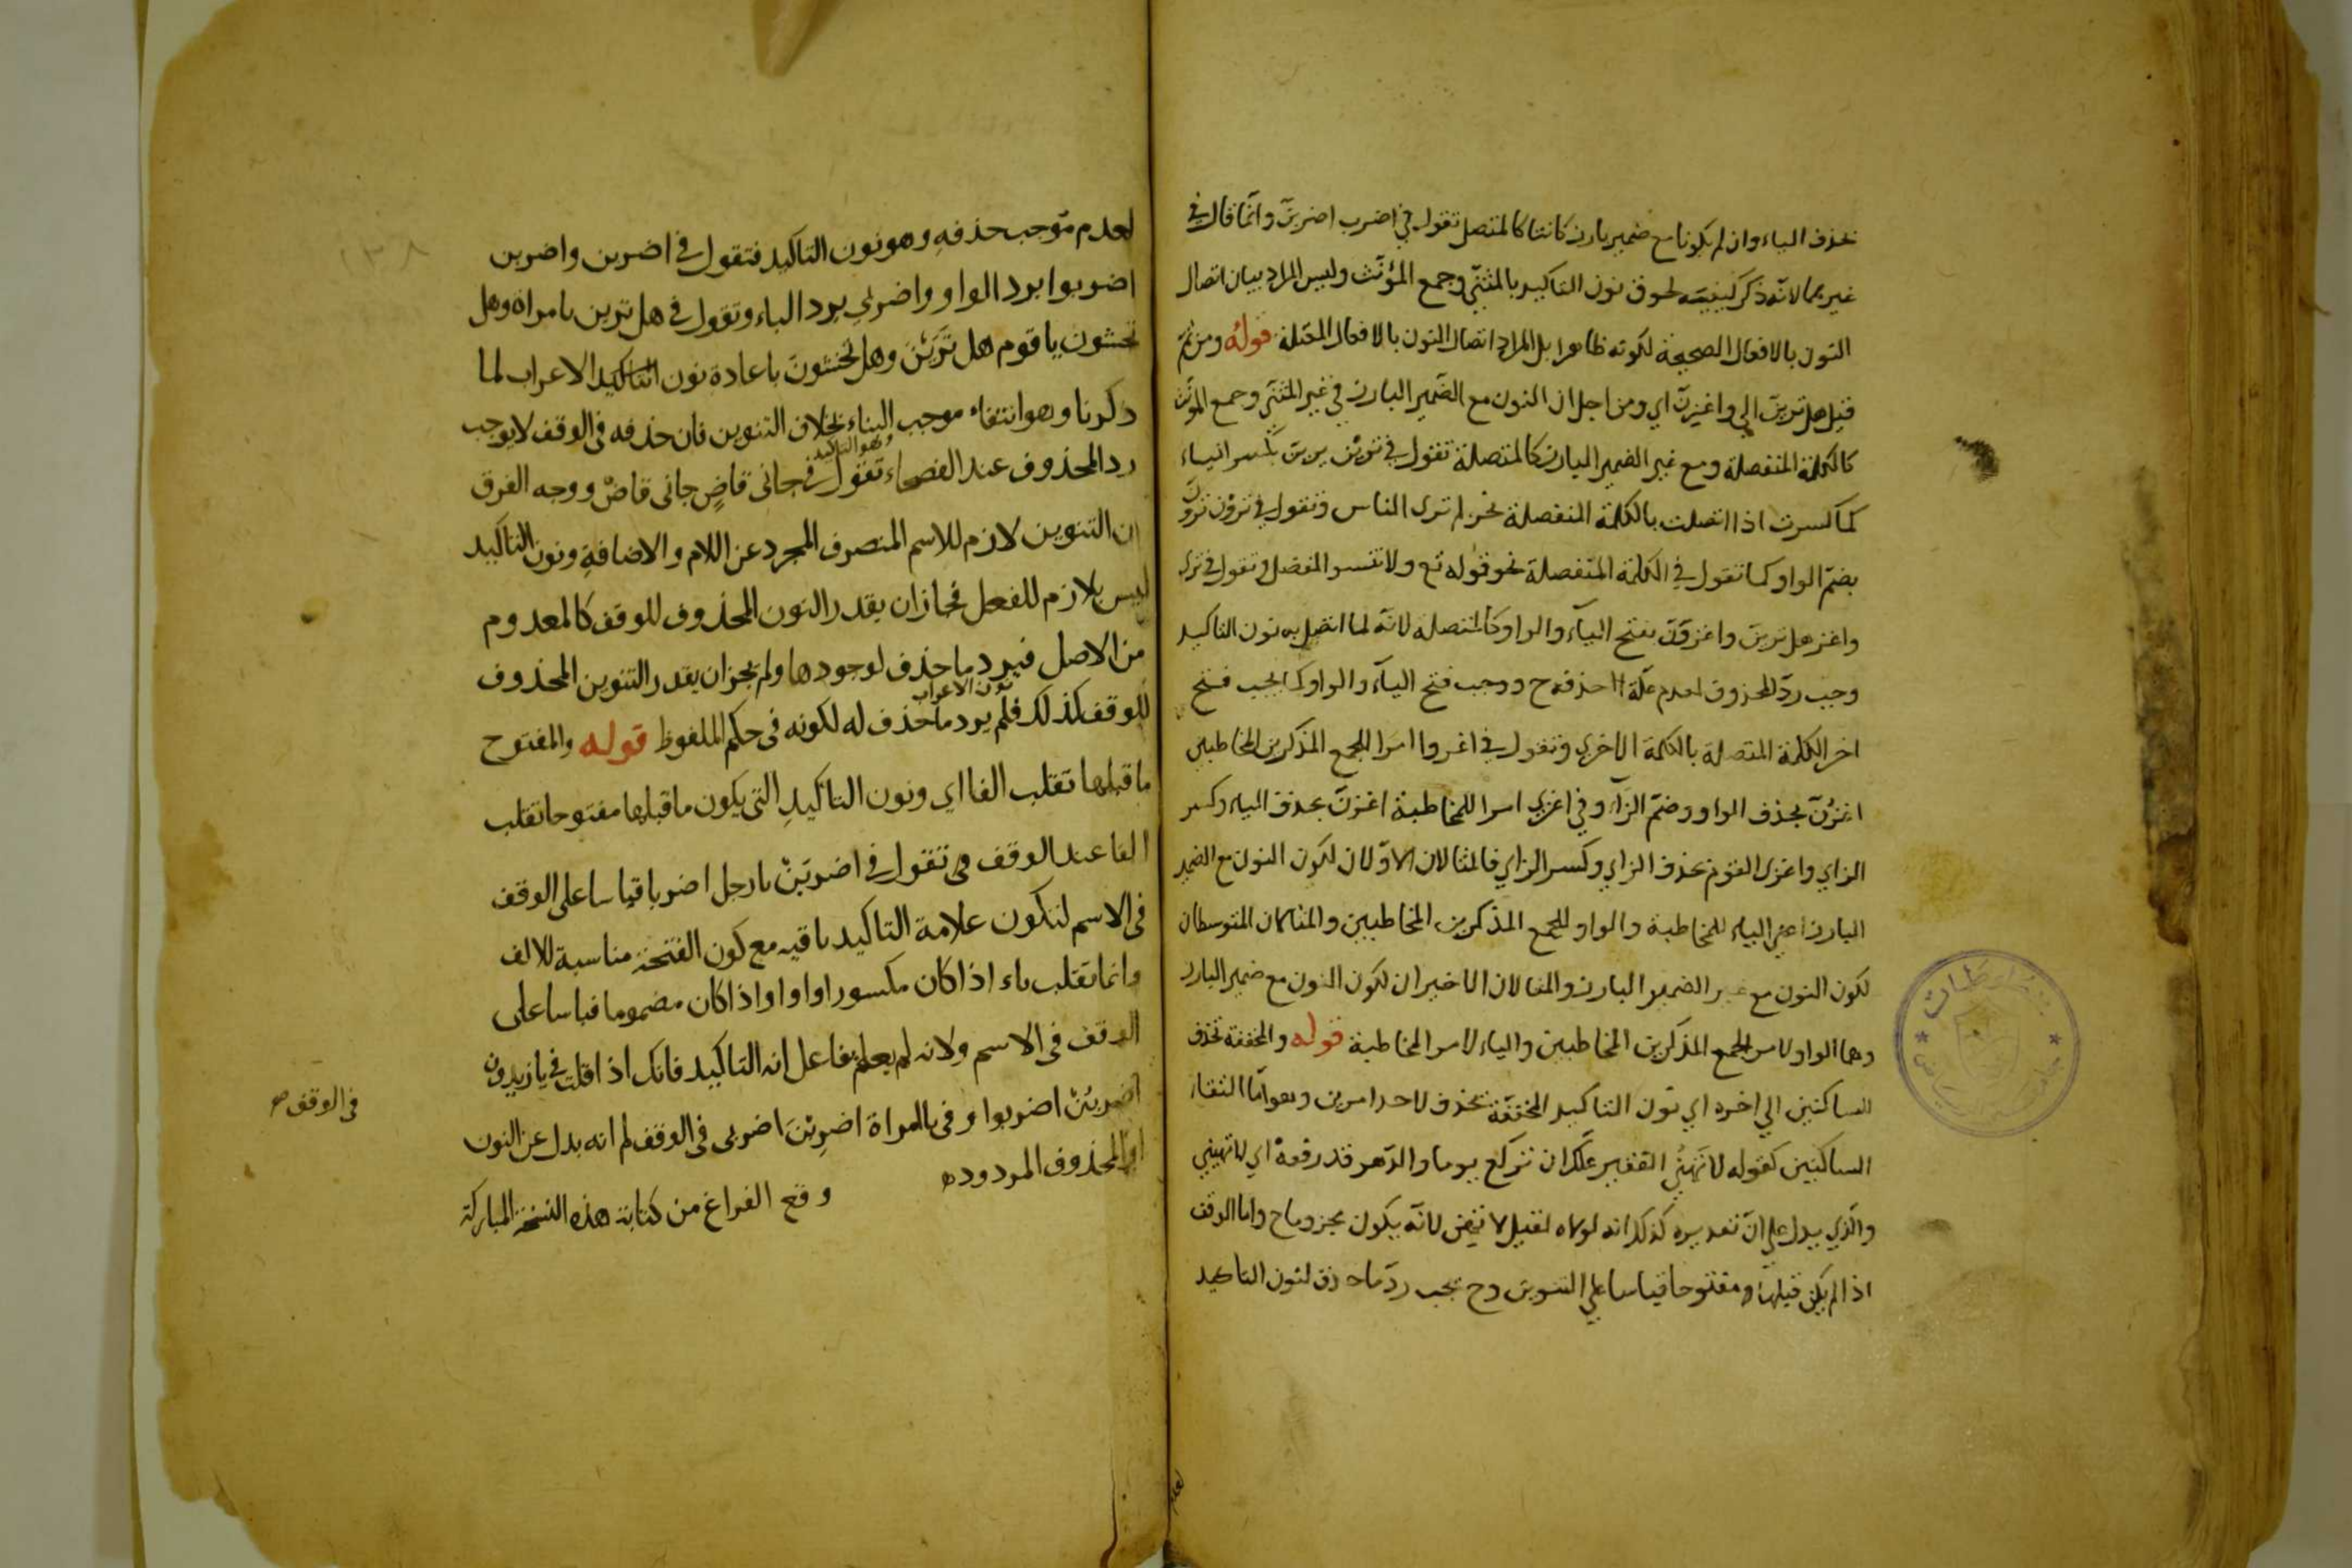 بحذف الياء وان لم يكونا مع ضمير بارز كانتا كالمتصل تقول في اضرب اضربنّ وانّما قال في
غيرهما لانّه ذكر كيفيته لحوق نون التاكيد بالمثنّي وجمع المؤنّث وليس المراد بيان اتصال
النّون بالافعال الصحيحة لكونه ظاهرا بل المراد اتصال النون بالافعال المعتلة قوله ومن ثمّ
قيل هل ترينّ الي واغزنّ اي ومن اجل ان النون مع الضّمير البارز في غير المثنّي وجمع المؤنّث
كالكلمة المنفصلة ومع غير الضمير البارز كالمتصلة تقول في ترين بكسر الياء
كما كسرت اذا اتصلت بالكلمة المنفصلة نحو لم تري الناس وتقول في ترون ترونّ
بضمّ الواو كما تقول في الكلمة المنفصلة نحو قوله تع ولا تنسوا الفضل وتقول في تري
واغز هل ترينّ واغزونّ بفتح الياء والواو كالمتصلة لانّه لما اتصل به نون التاكيد
وجب ردّ المحذوف لعدم علّة حذفه ح ووجب فتح الياء والواو كما يجب فتح
اخر الكلمة المتصلة بالكلمة الاخري وتقول في اغزوا امرا لجمع المذكرين المخاطبين
اغزُنّ بحذف الواو وضمّ الزاء وفي اغزي امرا للمخاطبة اغزنّ بحذف الياء وكسر
الزاي واغزي القوم بحذف الزاي وكسر الزاي فالمثالان الاوّلان لكون النون مع الضمير
البارز اعني الياء للمخاطبة والواو لجمع المذكرين المخاطبين والمثالان المتوسطان
لكون النون مع غير الضمير البارز والمثالان الاخيران لكون النون مع ضمير البارز
وهما الواو لامر الجمع المذكرين المخاطبين والياء لامر المخاطبة قوله والمخففة تحذف
للساكنين الي اخره اي نون التاكيد المخففة تحذف لاحد امرين وهو امّا التقاء
الساكنين كقوله لا تهينَ الفقير علّك ان تركع يوما والدّهر قد رفعه اي لا تهيني
والّذي يدل علي انّ تقديره كذلك انه لولاه لقيل لا تهن لانّه يكون مجزوما ح واما الوقف
اذا لم يكن قبلها مفتوحا قياسا علي التنوين وح يجب ردّ ما حذف لنون التاكيد
لعدم موجب حذفه وهو نون التاكيد فتقول في اضربن واضربن
اضربوا برد الواو واضربي برد الياء وتقول في هل ترين يا مراة وهل
تخشون يا قوم هل تَرَيْنَ وهل تخشونَ باعادة نون الاعراب لما
ذكرنا وهو انتفاء موجب البناء بخلاف التنوين فان حذفه في الوقف لا يوجب
وهو التاكيد
رد المحذوف عند الفصحاء تقول في جاني قاضٍ جاني قاضْ ووجه الفرق
ان التنوين لازم للاسم المنصرف المجرد عن اللام والاضافةِ ونون التاكيد
ليس بلازم للفعل فجاز ان يقدر النون المحذوف للوقف كالمعدوم
من الاصل فيرد ما حذف لوجودها ولم يجز ان يقدر التنوين المحذوف
نون الاعراب
للوقف كذلك فلم يرد ما حذف له لكونه في حكم الملفوظ قوله والمفتوح
ما قبلها تقلب الفا اي ونون التاكيدِ التي يكون ما قبلها مفتوحا تقلب
الفا عند الوقف تقول في اضربَنْ يا رجل اضربا قياسا على الوقف
في الاسم لتكون علامة التاكيد باقيه مع كون الفتحة مناسبة للالف
وانما تقلب ياء اذا كان مكسورا او واوا اذا كان مضموما قياسا على
الوقف في الاسم ولانه لم يعلم انه التاكيد فانك اذا قلت في يا زيدون
اضربُنْ اضربوا وفي يا امراة اضربِنَ اضربي في الوقف لم انه بدل عن النون
في الوقف صح
او المحذوف المردوده
وقع الفراغ من كتابة هذه النسخة المباركة
١٣٨